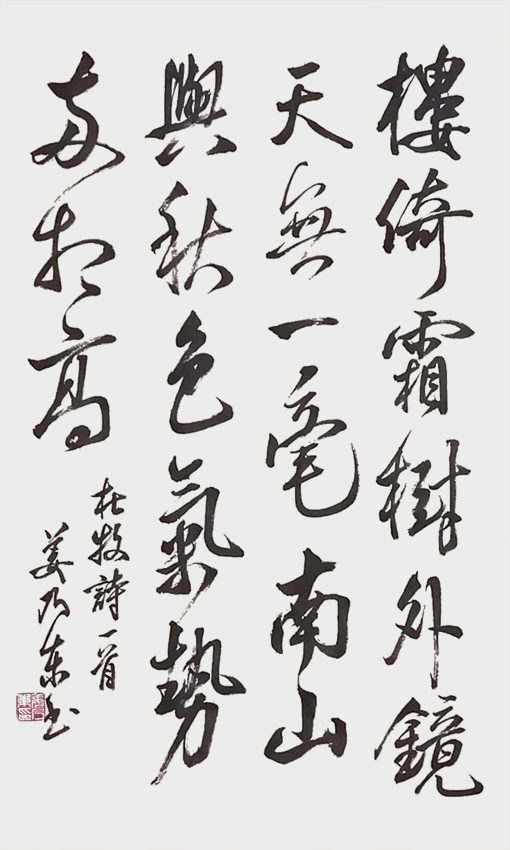 樓倚霜樹外鏡
天無一毫南山
與秋色氣勢
兩相高
杜牧詩一首
姜乃東书